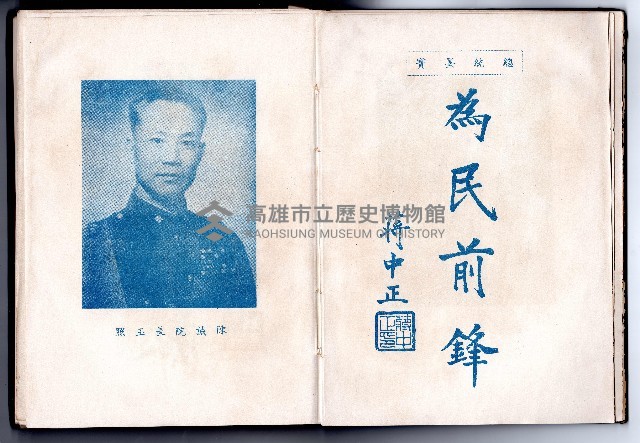 總統墨寶
為民前鋒
蔣中正
蔣中正印
陳誠院長玉照
高雄市立歷史博物館
KAOHSIUNG MUSEUM OF HISTORY